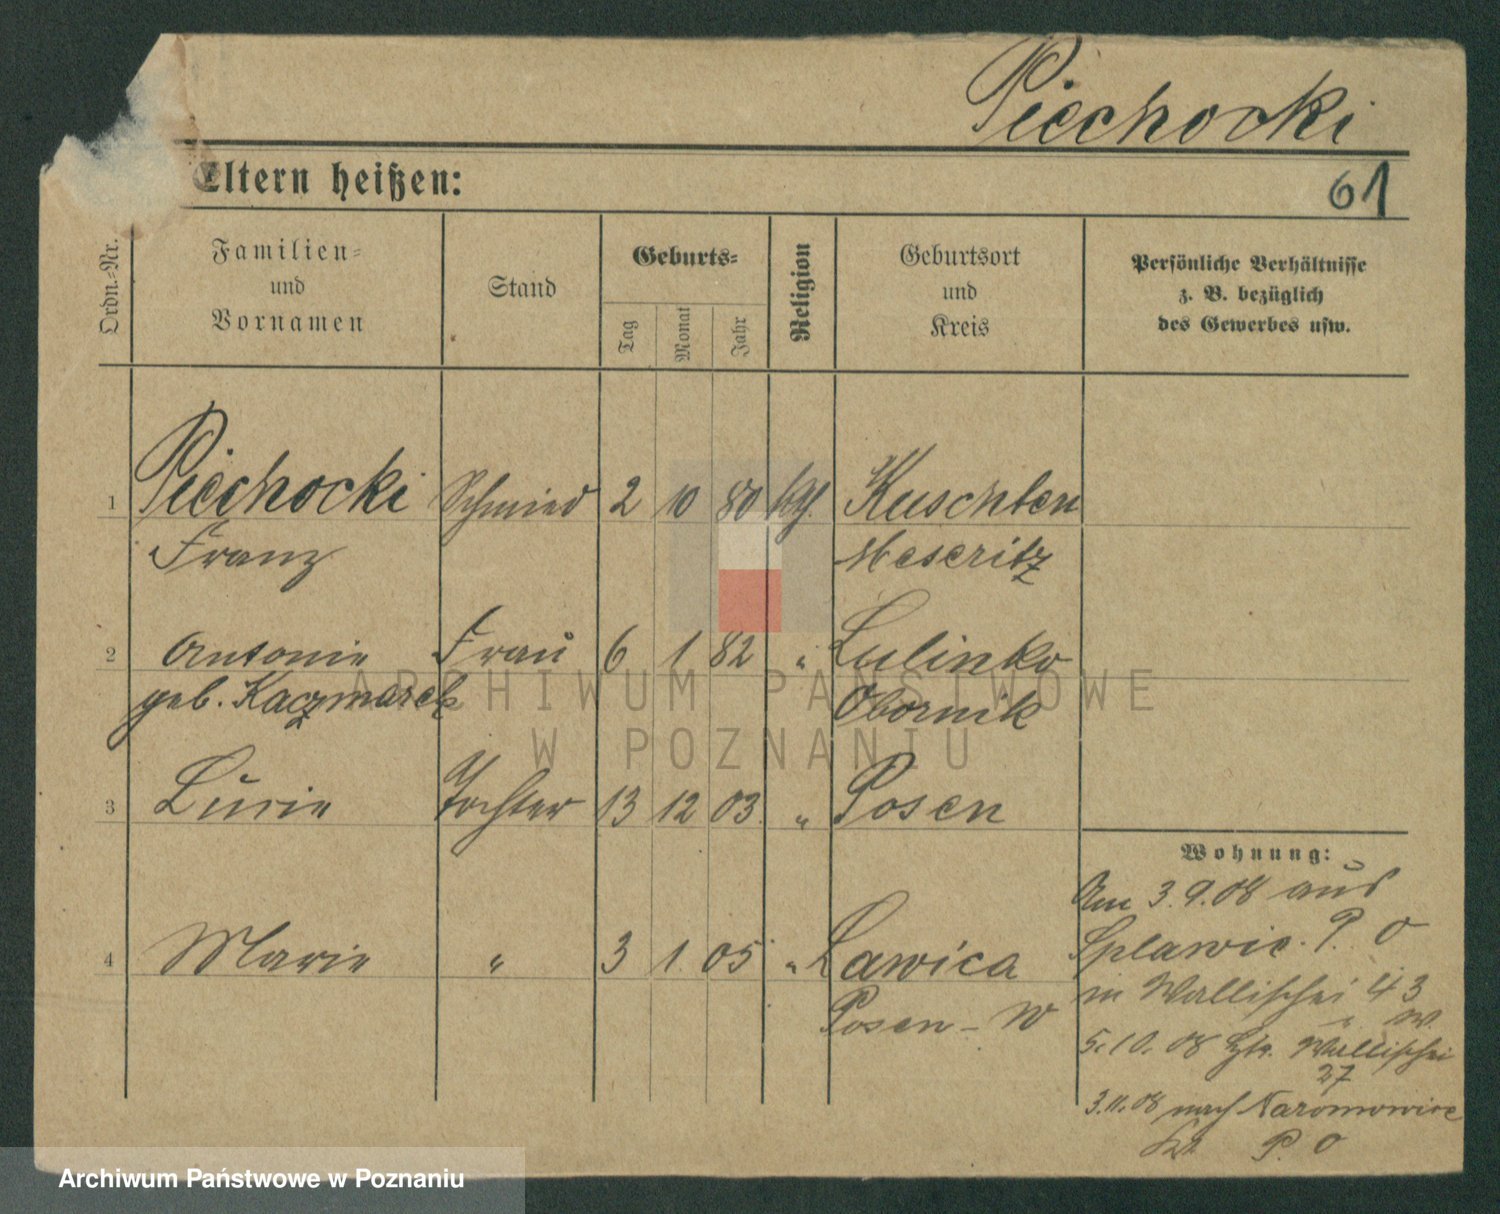 Piechocki
Eltern heißen:
61
Ordn.-Nr.
Familien-
und
Vornamen
Stand
Geburts-
Tag
Monat
Jahr
Religion
Geburtsort
und
Kreis
Persönliche Verhältnisse
z. B. bezüglich
des Gewerbes usw.
1 Piechocki Schmied 2 10 80 kth. Kuschten
Franz Meseritz
2 Antonie Frau 6 1 82 " Lulinko
geb. Kaczmarek Obornik
3 Lucie Tochter 13 12 03 " Posen
4 Marie " 3 1 05 " Lawica
Posen - W
Wohnung:
Am 3.9.08 aus
Splawie. P. O
in Wallischei 43
" W.
5.10.08 Wallischei
27
3.11.08 nach Naramowice
P. O
ARCHIWUM PAŃSTWOWE
W POZNANIU
Archiwum Państwowe w Poznaniu